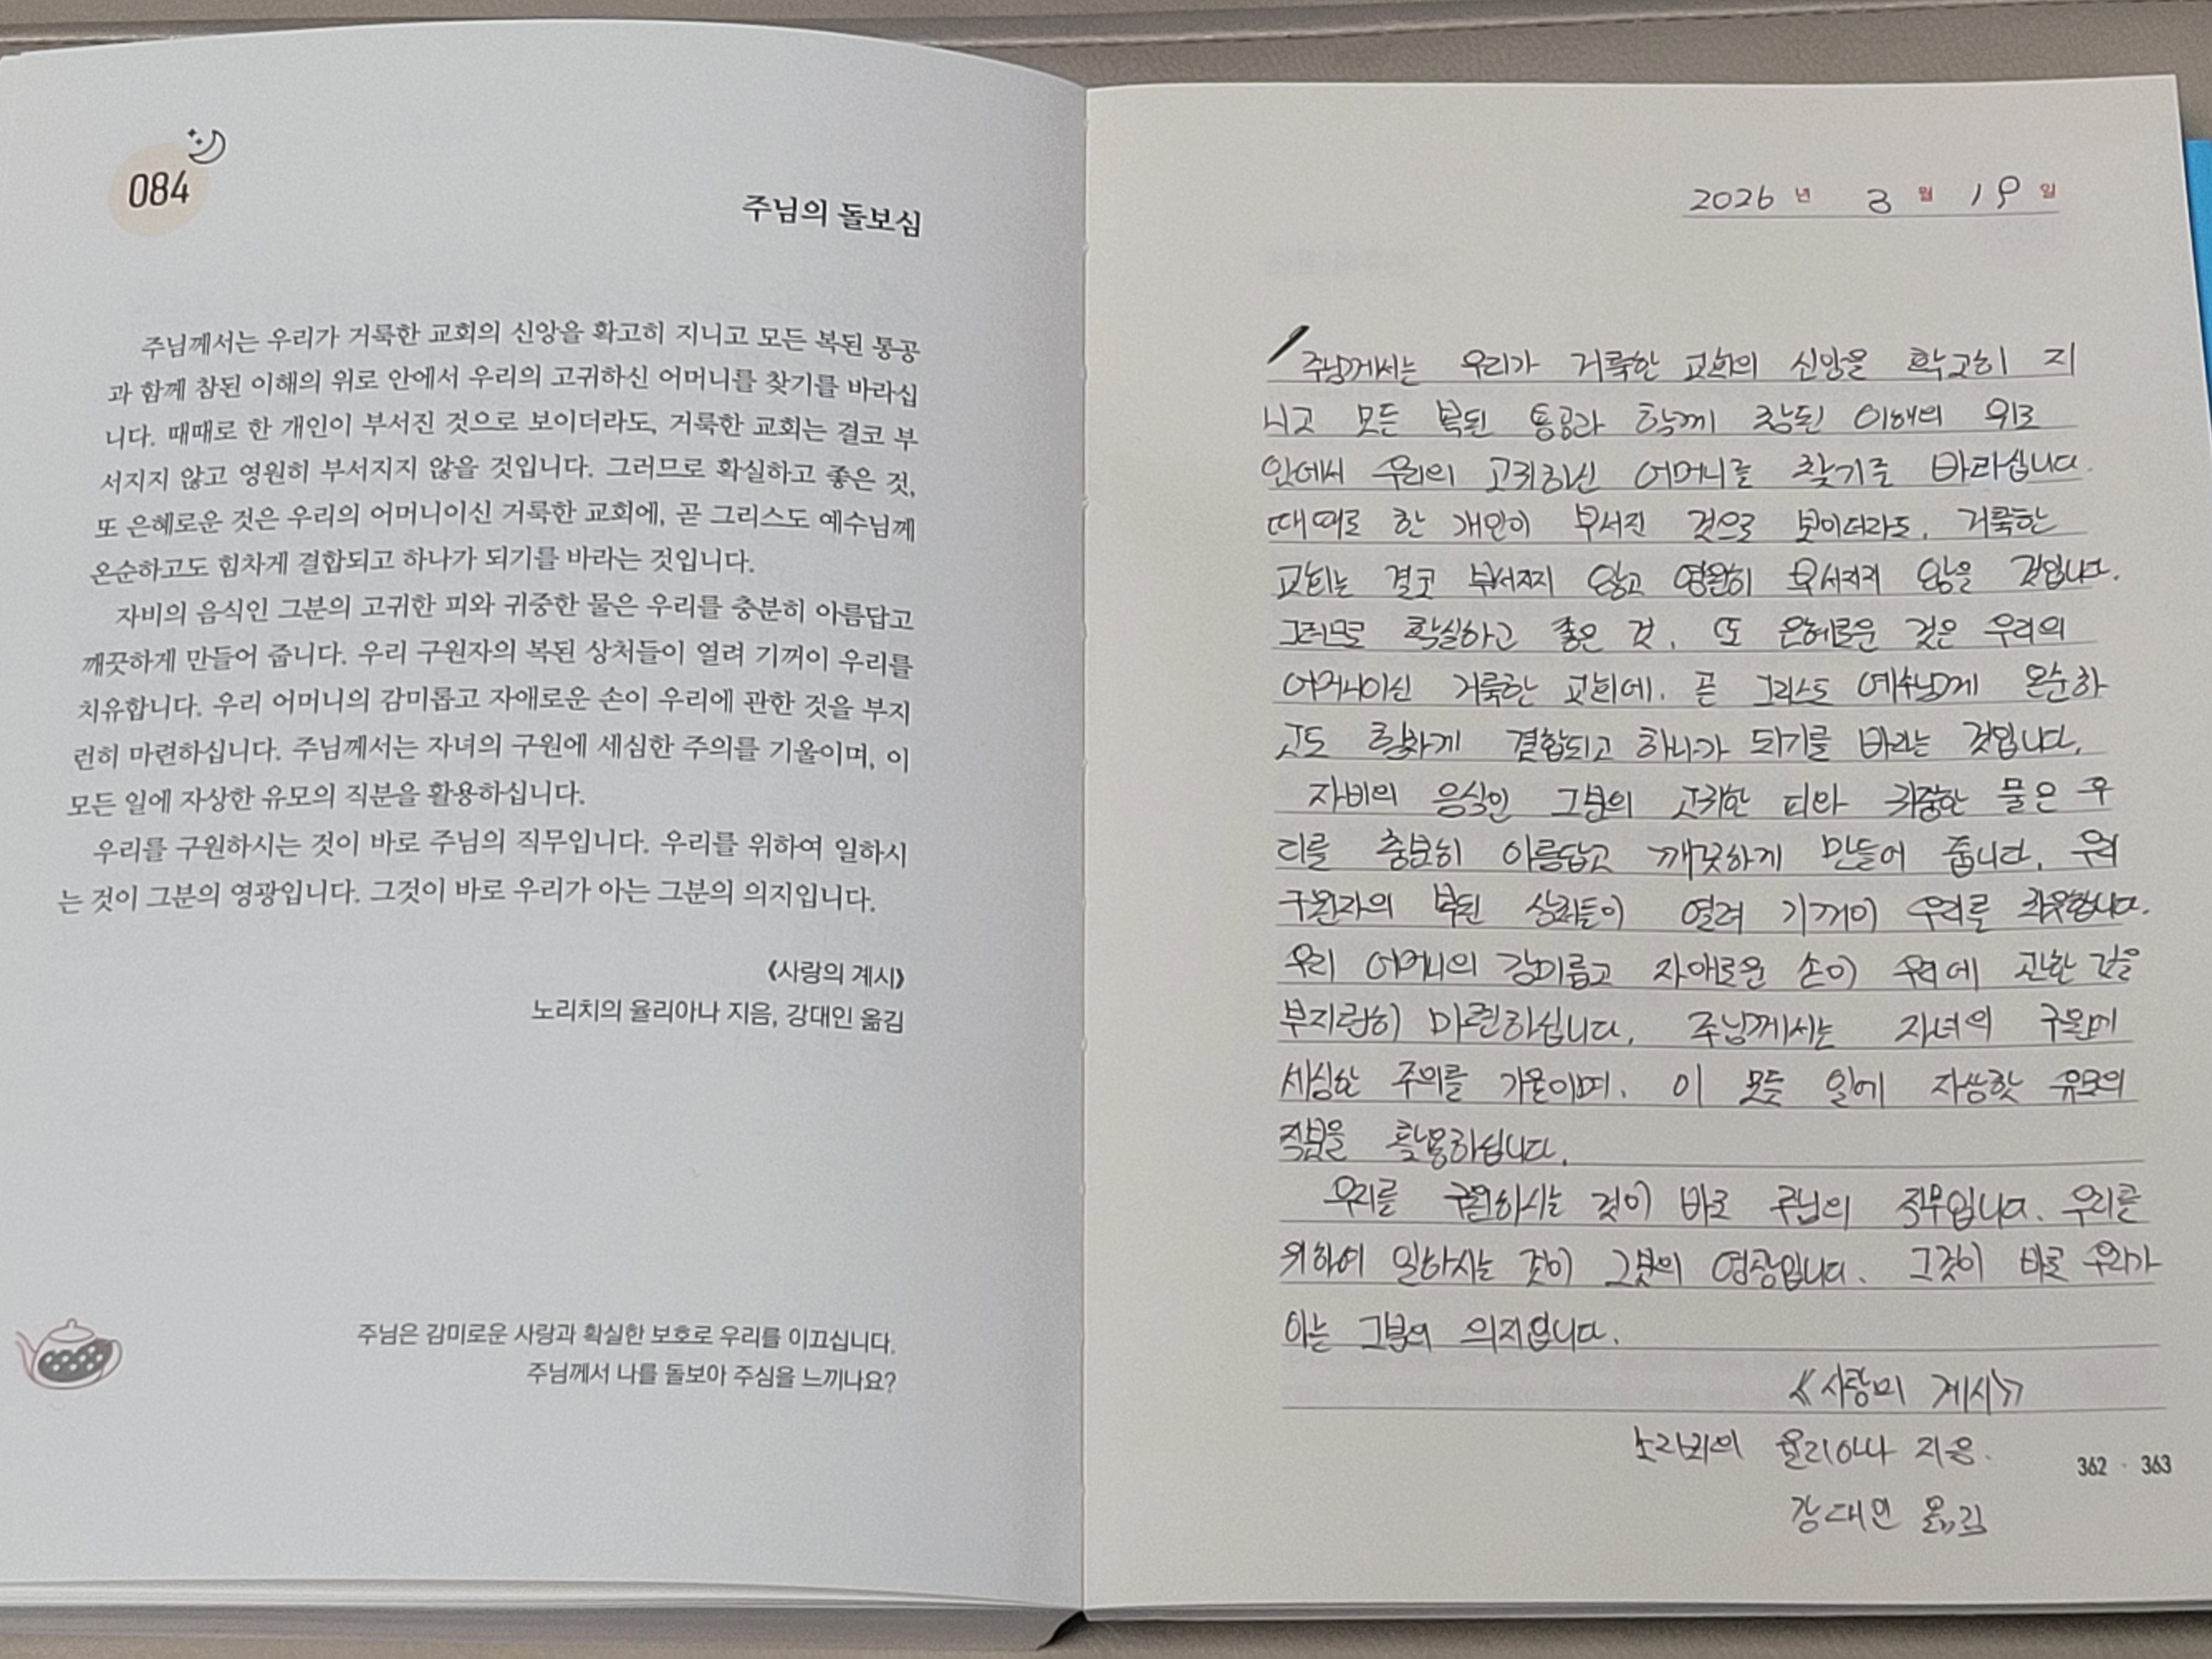 084
주님의 돌보심
주님께서는 우리가 거룩한 교회의 신앙을 확고히 지니고 모든 복된 통공
과 함께 참된 이해의 위로 안에서 우리의 고귀하신 어머니를 찾기를 바라십
니다. 때때로 한 개인이 부서진 것으로 보이더라도, 거룩한 교회는 결코 부
서지지 않고 영원히 부서지지 않을 것입니다. 그러므로 확실하고 좋은 것,
또 은혜로운 것은 우리의 어머니이신 거룩한 교회에, 곧 그리스도 예수님께
온순하고도 힘차게 결합되고 하나가 되기를 바라는 것입니다.
자비의 음식인 그분의 고귀한 피와 귀중한 물은 우리를 충분히 아름답고
깨끗하게 만들어 줍니다. 우리 구원자의 복된 상처들이 열려 기꺼이 우리를
치유합니다. 우리 어머니의 감미롭고 자애로운 손이 우리에 관한 것을 부지
런히 마련하십니다. 주님께서는 자녀의 구원에 세심한 주의를 기울이며, 이
모든 일에 자상한 유모의 직분을 활용하십니다.
우리를 구원하시는 것이 바로 주님의 직무입니다. 우리를 위하여 일하시
는 것이 그분의 영광입니다. 그것이 바로 우리가 아는 그분의 의지입니다.
《사랑의 계시》
노리치의 율리아나 지음, 강대인 옮김
주님은 감미로운 사랑과 확실한 보호로 우리를 이끄십니다.
주님께서 나를 돌보아 주심을 느끼나요?
2026 년 3 월 19 일
주님께서는 우리가 거룩한 교회의 신앙을 확고히 지
니고 모든 복된 통공과 함께 참된 이해의 위로
안에서 우리의 고귀하신 어머니를 찾기를 바라십니다.
때때로 한 개인이 부서진 것으로 보이더라도, 거룩한
교회는 결코 부서지지 않고 영원히 부서지지 않을 것입니다.
그러므로 확실하고 좋은 것, 또 은혜로운 것은 우리의
어머니이신 거룩한 교회에, 곧 그리스도 예수님께 온순하
고도 힘차게 결합되고 하나가 되기를 바라는 것입니다.
자비의 음식인 그분의 고귀한 피와 귀중한 물은 우
리를 충분히 아름답고 깨끗하게 만들어 줍니다. 우리
구원자의 복된 상처들이 열려 기꺼이 우리를 치유합니다.
우리 어머니의 감미롭고 자애로운 손이 우리에 관한 것을
부지런히 마련하십니다. 주님께서는 자녀의 구원에
세심한 주의를 기울이며, 이 모든 일에 자상한 유모의
직분을 활용하십니다.
우리를 구원하시는 것이 바로 주님의 직무입니다. 우리를
위하여 일하시는 것이 그분의 영광입니다. 그것이 바로 우리가
아는 그분의 의지입니다.
《사랑의 계시》
노리치의 율리아나 지음.
강대인 옮김
362 · 363